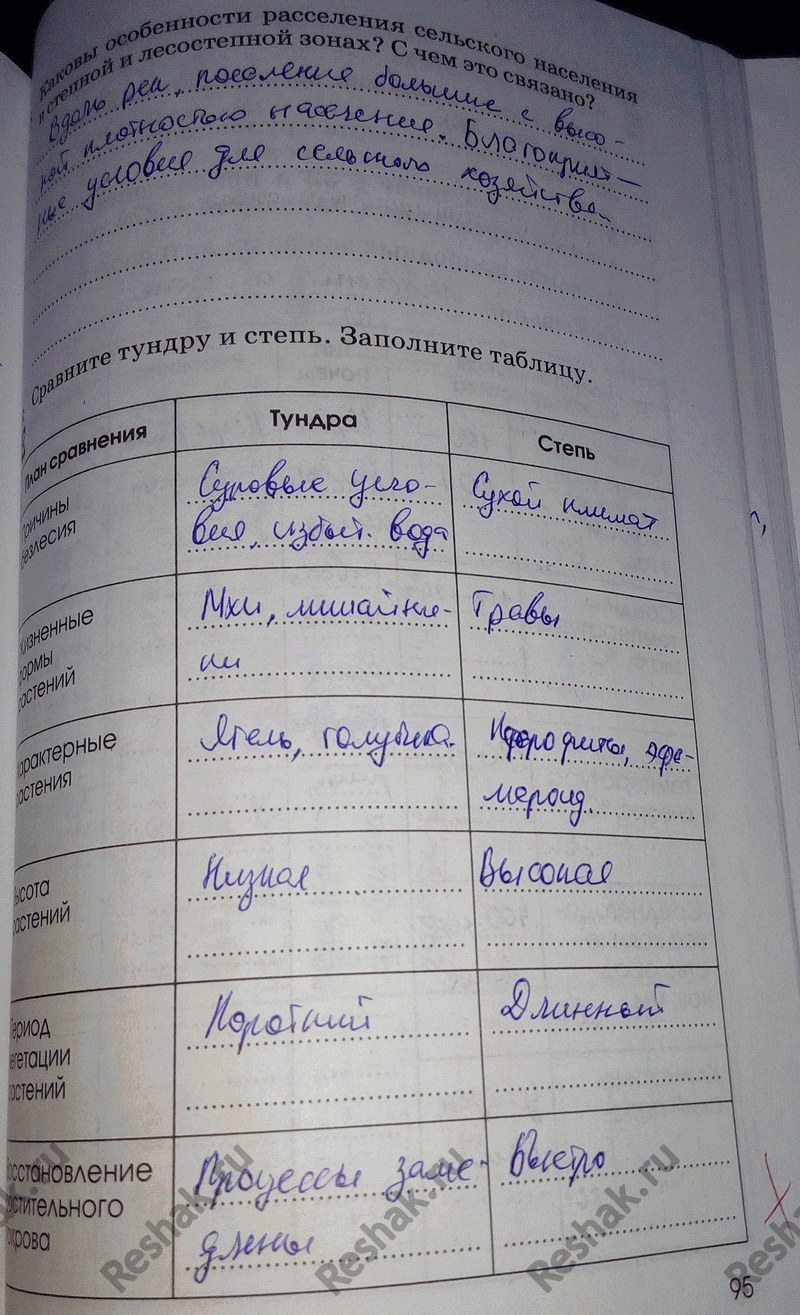 Каковы особенности расселения сельского населения
в степной и лесостепной зонах? С чем это связано?
Вдоль рек, поселение большие с высо-
кой плотностью население. Благоприят-
ные условия для сельского хозяйства.
Сравните тундру и степь. Заполните таблицу.
План сравнения
Тундра
Степь
Причины
безлесия
Суровые усло-
вия, избыт. вода
Сухой климат
Жизненные
формы
растений
Мхи, лишайни-
ки
Травы
Характерные
растения
Ягель, голубика.
эфе-
мероид.
Высота
растений
Низкая
Высокая
Период
вегетации
растений
Короткий
Длинный
Восстановление
растительного
покрова
Процессы заме-
длены
Быстро
95
Reshak.ru
Reshak.ru
Reshak.ru